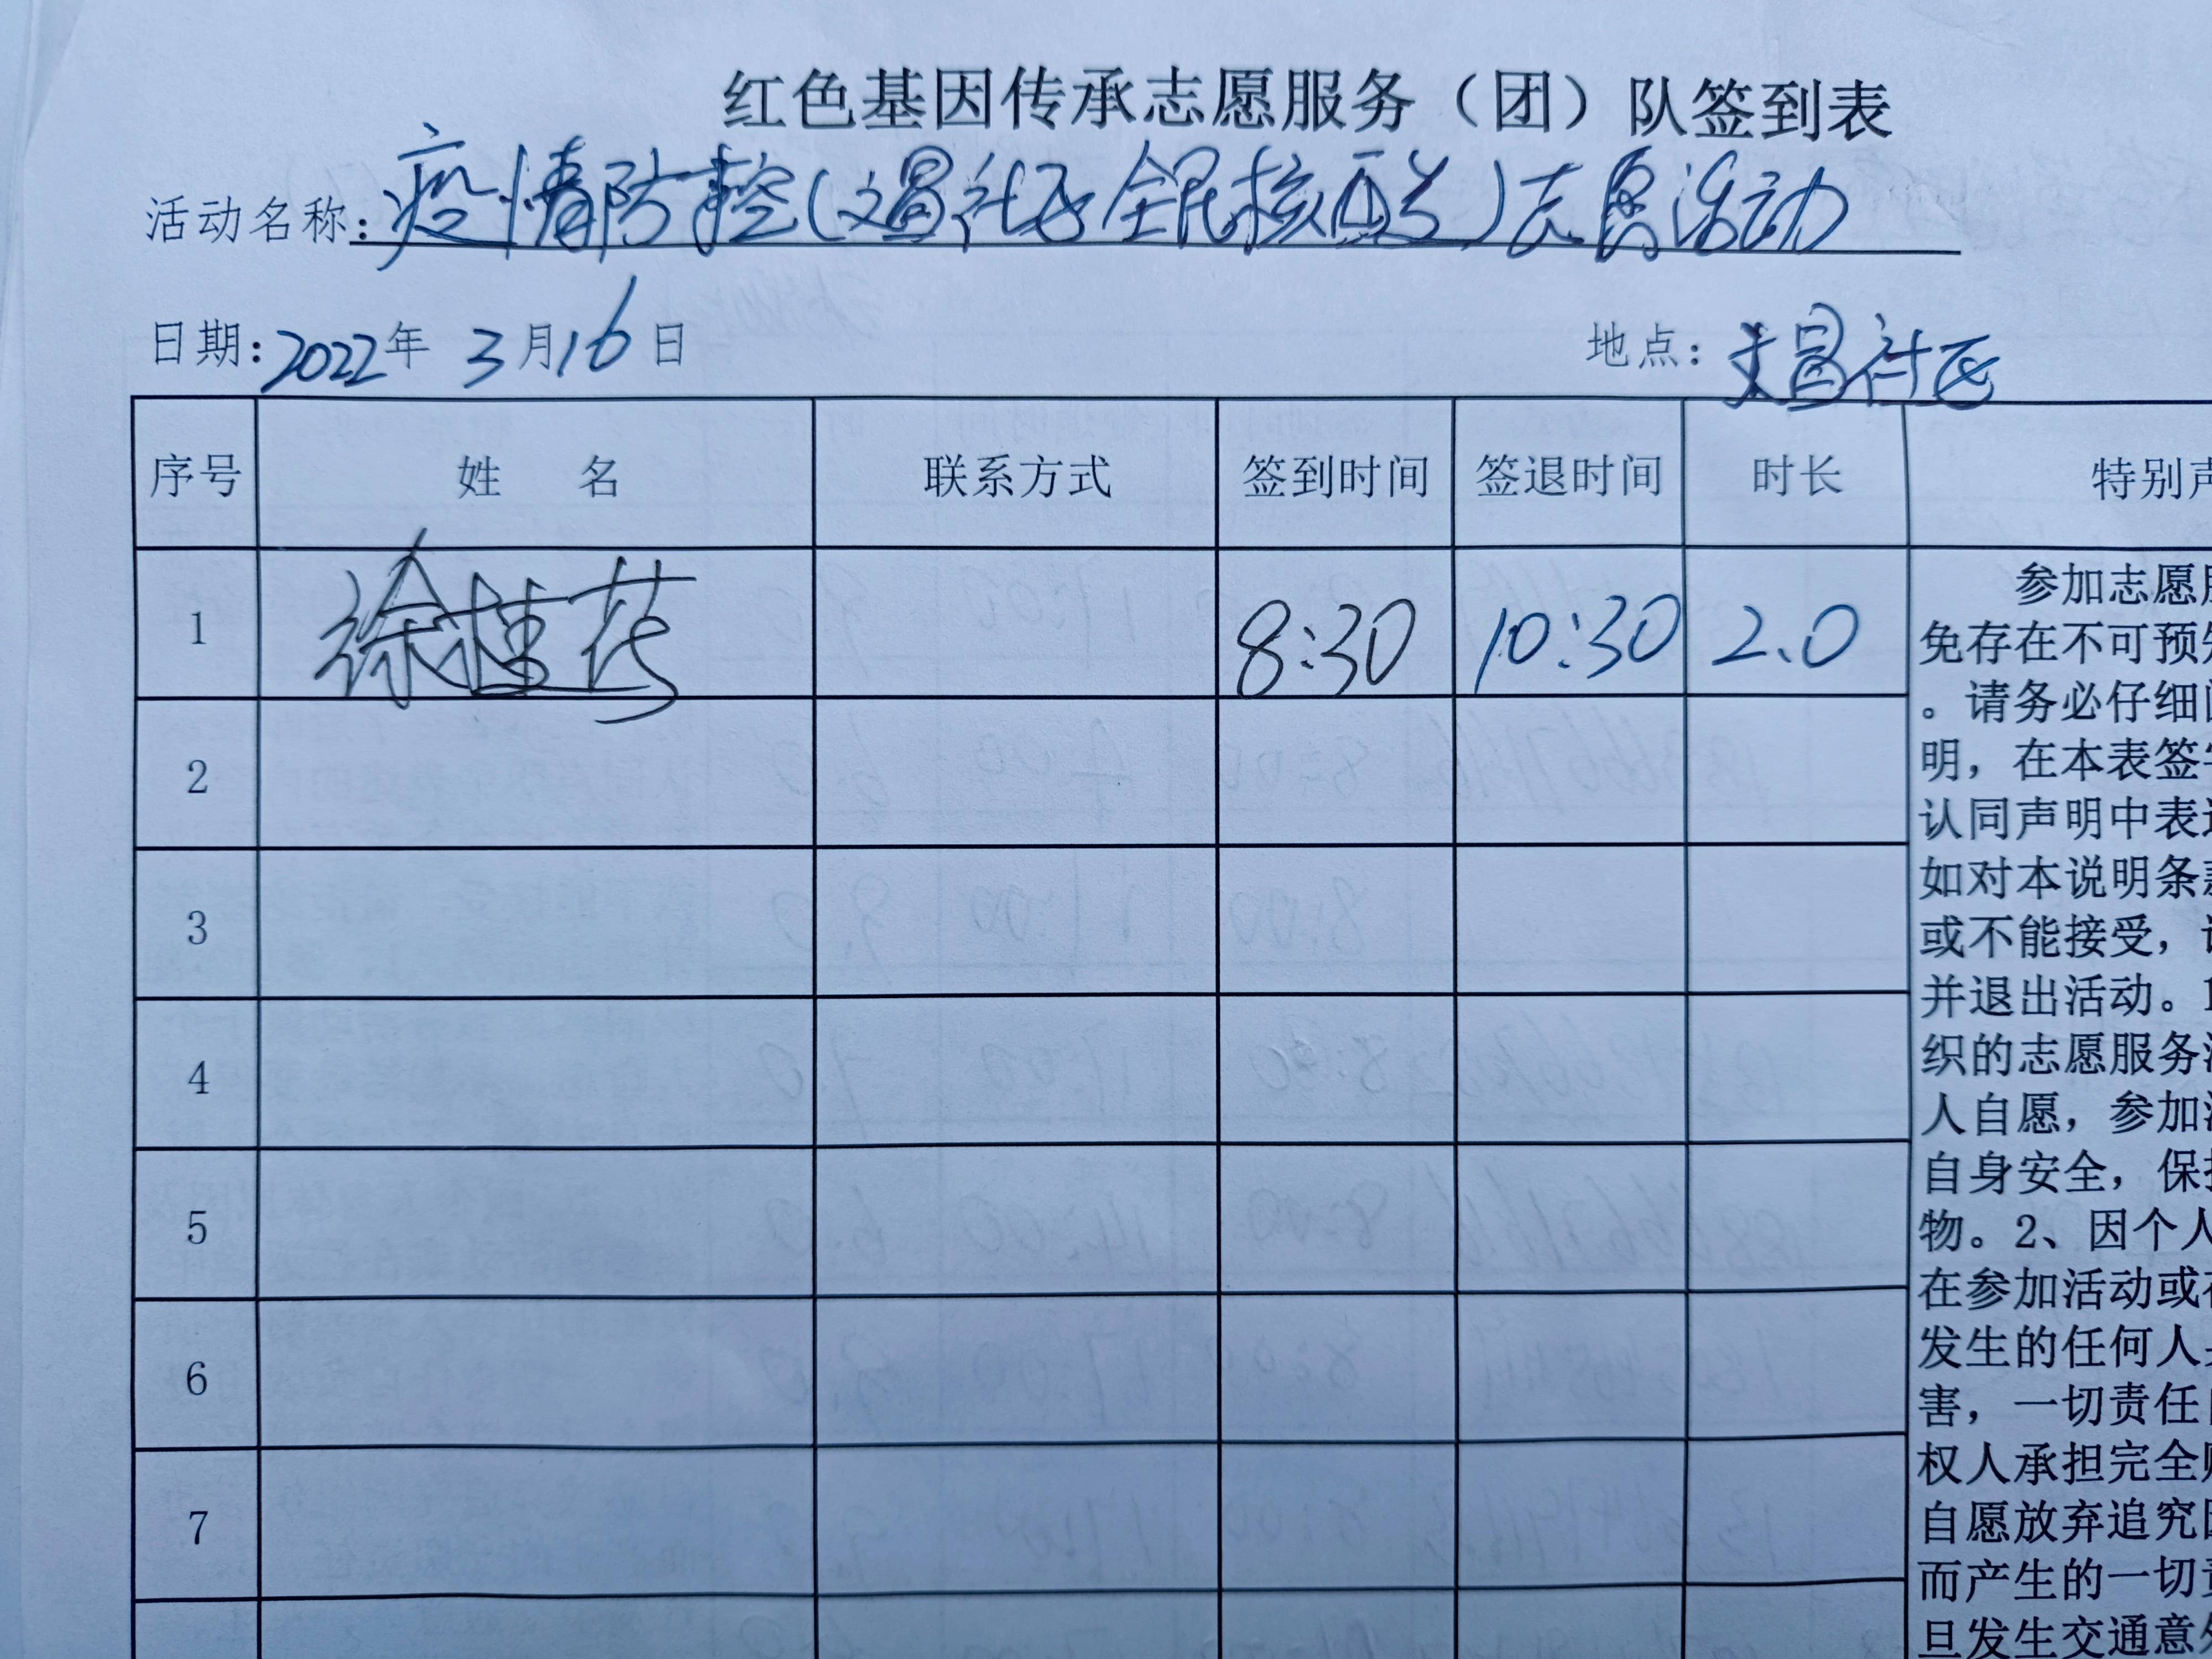 红色基因传承志愿服务（团）队签到表
活动名称：疫情防控（文昌社区全民核酸）志愿活动
日期：2022年 3月16日 地点：文昌社区
序号 姓 名 联系方式 签到时间 签退时间 时长 特别声
1 徐桂芬 8:30 10:30 2.0
2
3
4
5
6
7
参加志愿服
免存在不可预知
。请务必仔细阅
明，在本表签字
认同声明中表述
如对本说明条款
或不能接受，请
并退出活动。1
织的志愿服务活
人自愿，参加活
自身安全，保护
物。2、因个人
在参加活动或在
发生的任何人身
害，一切责任自
权人承担完全赔
自愿放弃追究因
而产生的一切责
旦发生交通意外